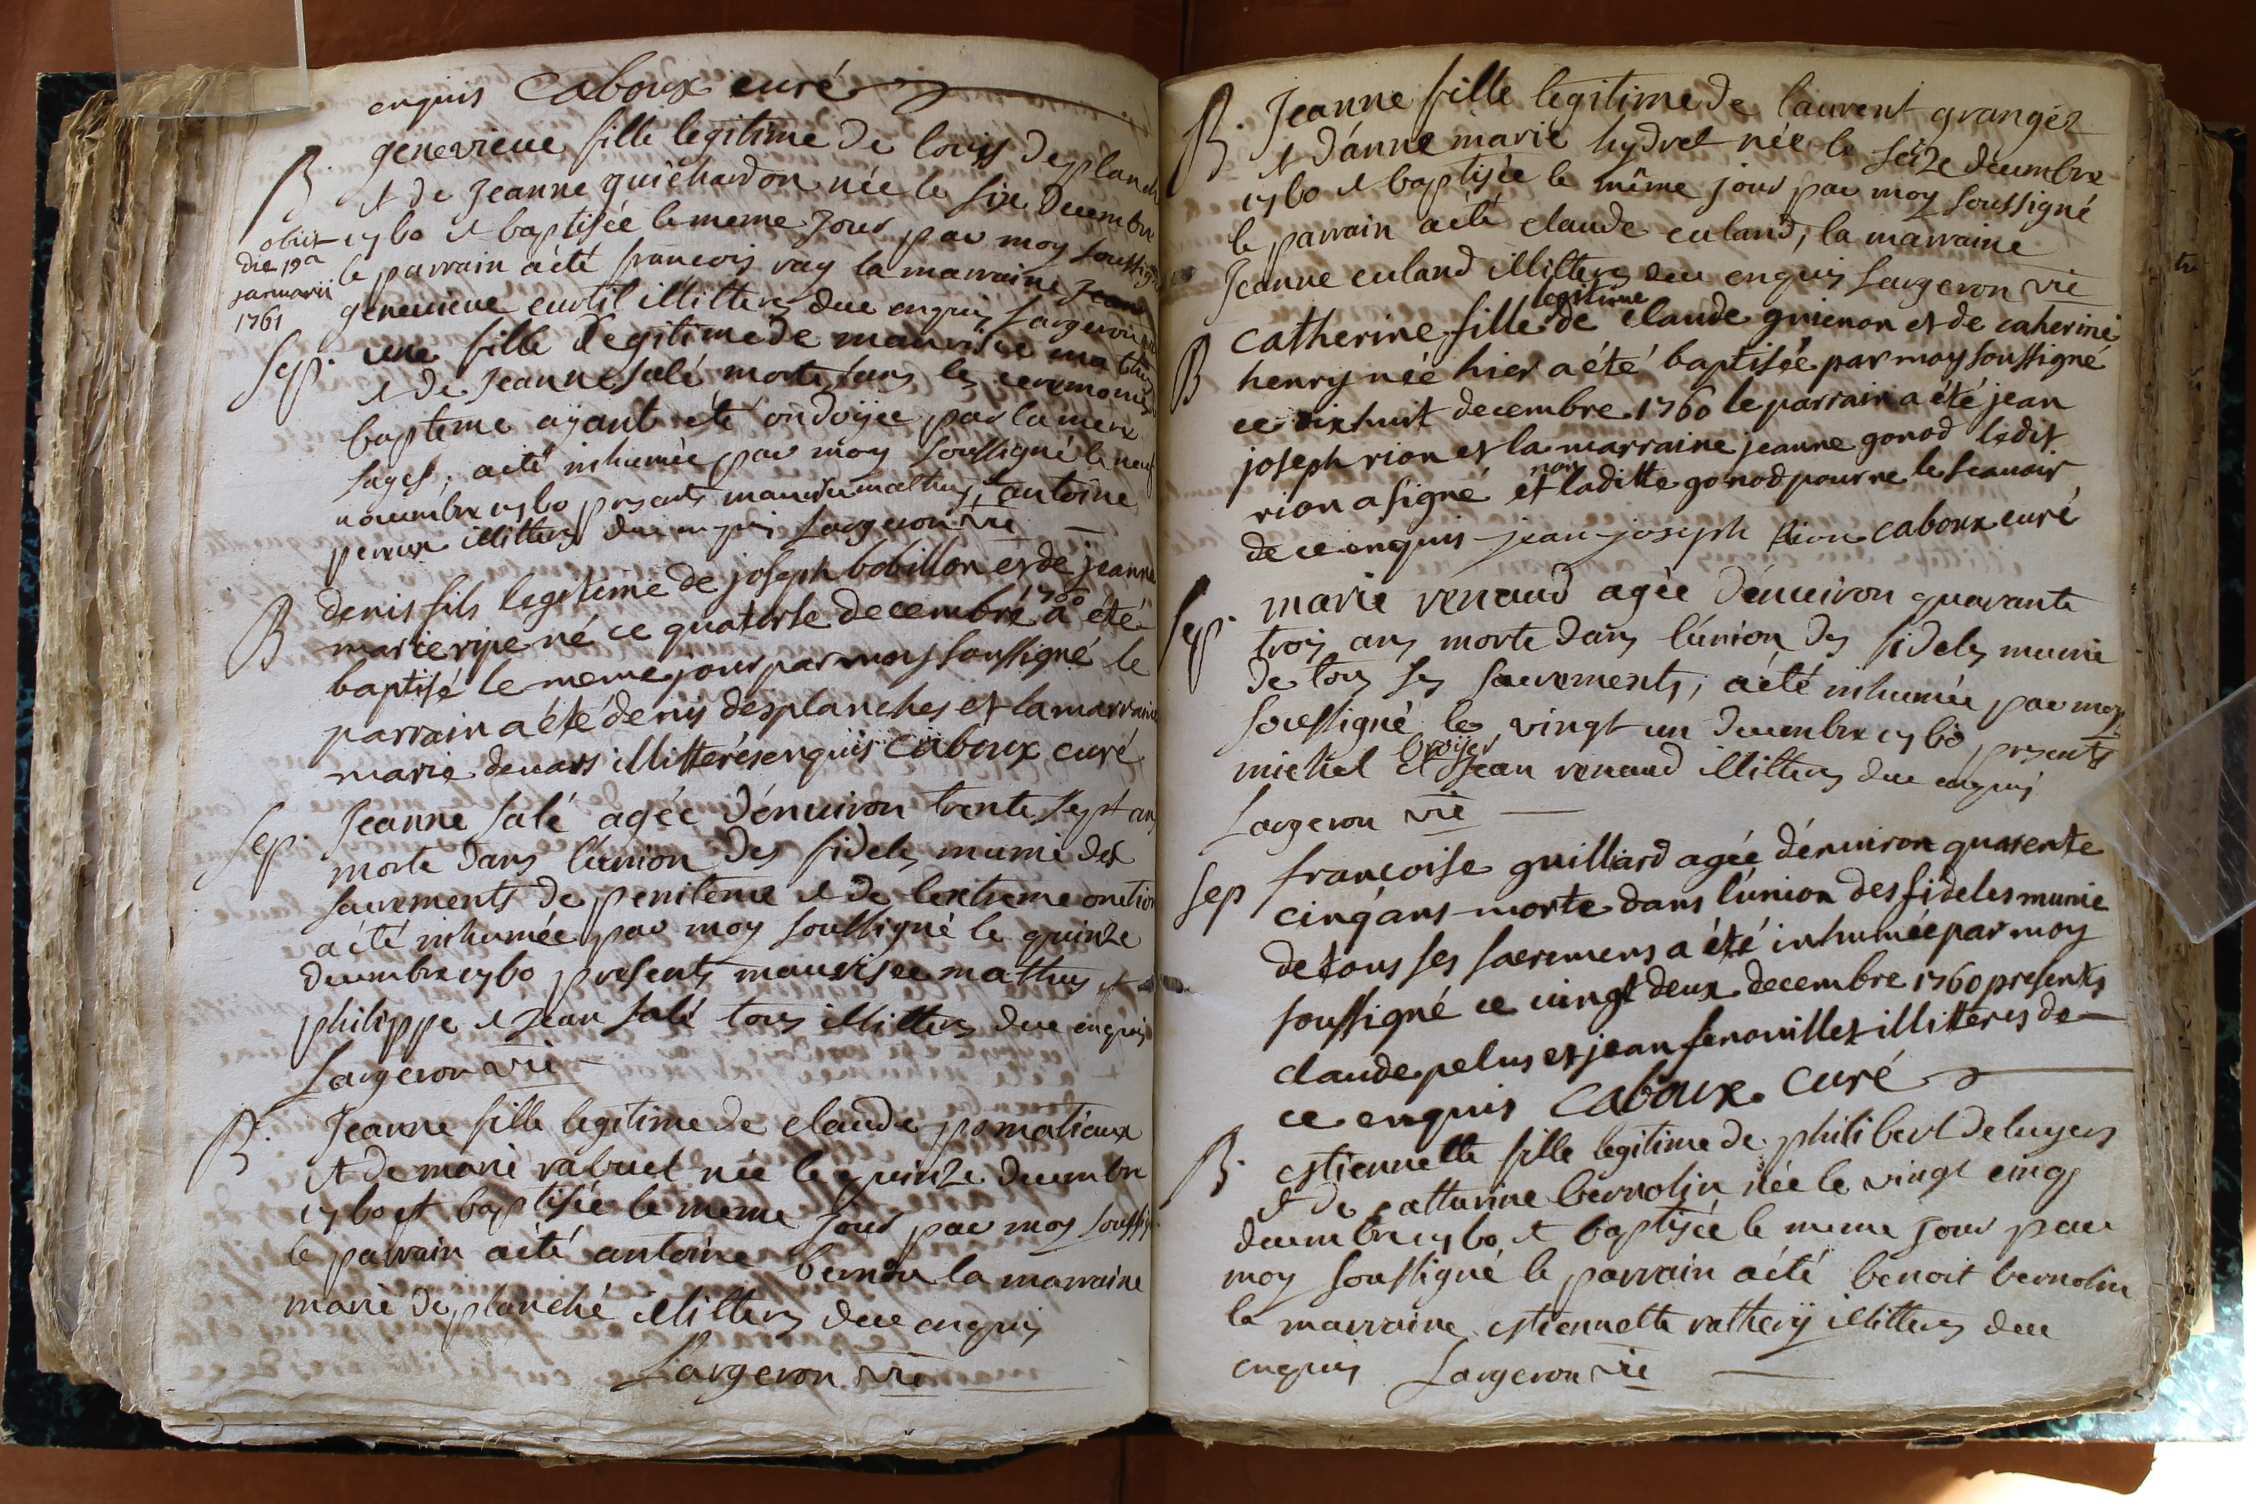 enquis Caboux curé
B. genevieve fille legitime de louis desplanch
et de Jeanne guichardon née le six decembre
1760 et baptisée le meme jour par moy soussigné
obiit
die 19a
januarii
1761
le parrain a été francois ray la marraine
genevieve curtil illitteres due enquis Largeron
Sep. une fille legitime de maurisse mathus
et de Jeanne salé morte sans les ceremonies
bapteme ayant été ondoyée par la mere
sagef. a été inhumée par moy soussigné le neuf
novembre 1760 presents maurisse mathus et antoine
perrux illitteres due enquis Largeron vic
B denis fils legitime de joseph bobillon et de jeanne
marie ripe né ce quatorse decembre 1760 a été
baptisé le meme jour par moy soussigné le
parrain a été denis desplanches et la marraine
marie devars illitterés enquis Caboux curé
Sep. Jeanne salé agée d'enuiron trente sept ans
morte dans l'union des fideles munie des
sacrements de penitence et de lextreme onction
a été inhumée par moy soussigné le quinze
decembre 1760 presents maurisse mathus et
philippe et Jean salé tous illitteres due enquis
Largeron vic
B. Jeanne fille legitime de claude pomatiaux
et de marie rabuel née le quinze decembre
1760 et baptisée le meme jour par moy soussig
le parrain a été antoine la marraine
marie deplanché illitteres due enquis
Largeron vic
B. Jeanne fille legitime de laurent granger
et d'anne marie hydret née le seize decembre
1760 et baptisée le même jour par moy soussigné
le parrain a été claude euland, la marraine
Jeanne euland illitteres due enquis Largeron vic
B catherine fille legitime de claude guienon et de caherine
henry née hier a été baptisée par moy soussigné
ce dix huit decembre 1760 le parrain a été jean
joseph rion et la marraine jeanne gonod ledit
rion a signé et non laditte gonod pour ne le scauoir
de ce enquis jean joseph Rion caboux curé
Sep. marie renaud agée d'enuiron quarante
trois ans morte dans l'union des fideles munie
de tous ses sacrements, a été inhumée par moy
soussigné le vingt un decembre 1760 presents
michel broyer et Jean renaud illitteres due enquis
Largeron vic
Sep francoise guilliard agée d'enuiron quarente
cinq ans morte dans l'union des fideles munie
de tous ses sacremens a été inhumée par moy
soussigné ce vingt deux decembre 1760 presents
claude pelus et jean fenouillet illitteres de
ce enquis Caboux Curé
B. estiennette fille legitime de philibert deluyers
et de catturine bernolin née le vingt cinq
decembre 1760 et baptisée le meme jour par
moy soussigné le parrain a été benoit bernolin
la marraine estiennette rathery illitteres due
enquis Largeron vic